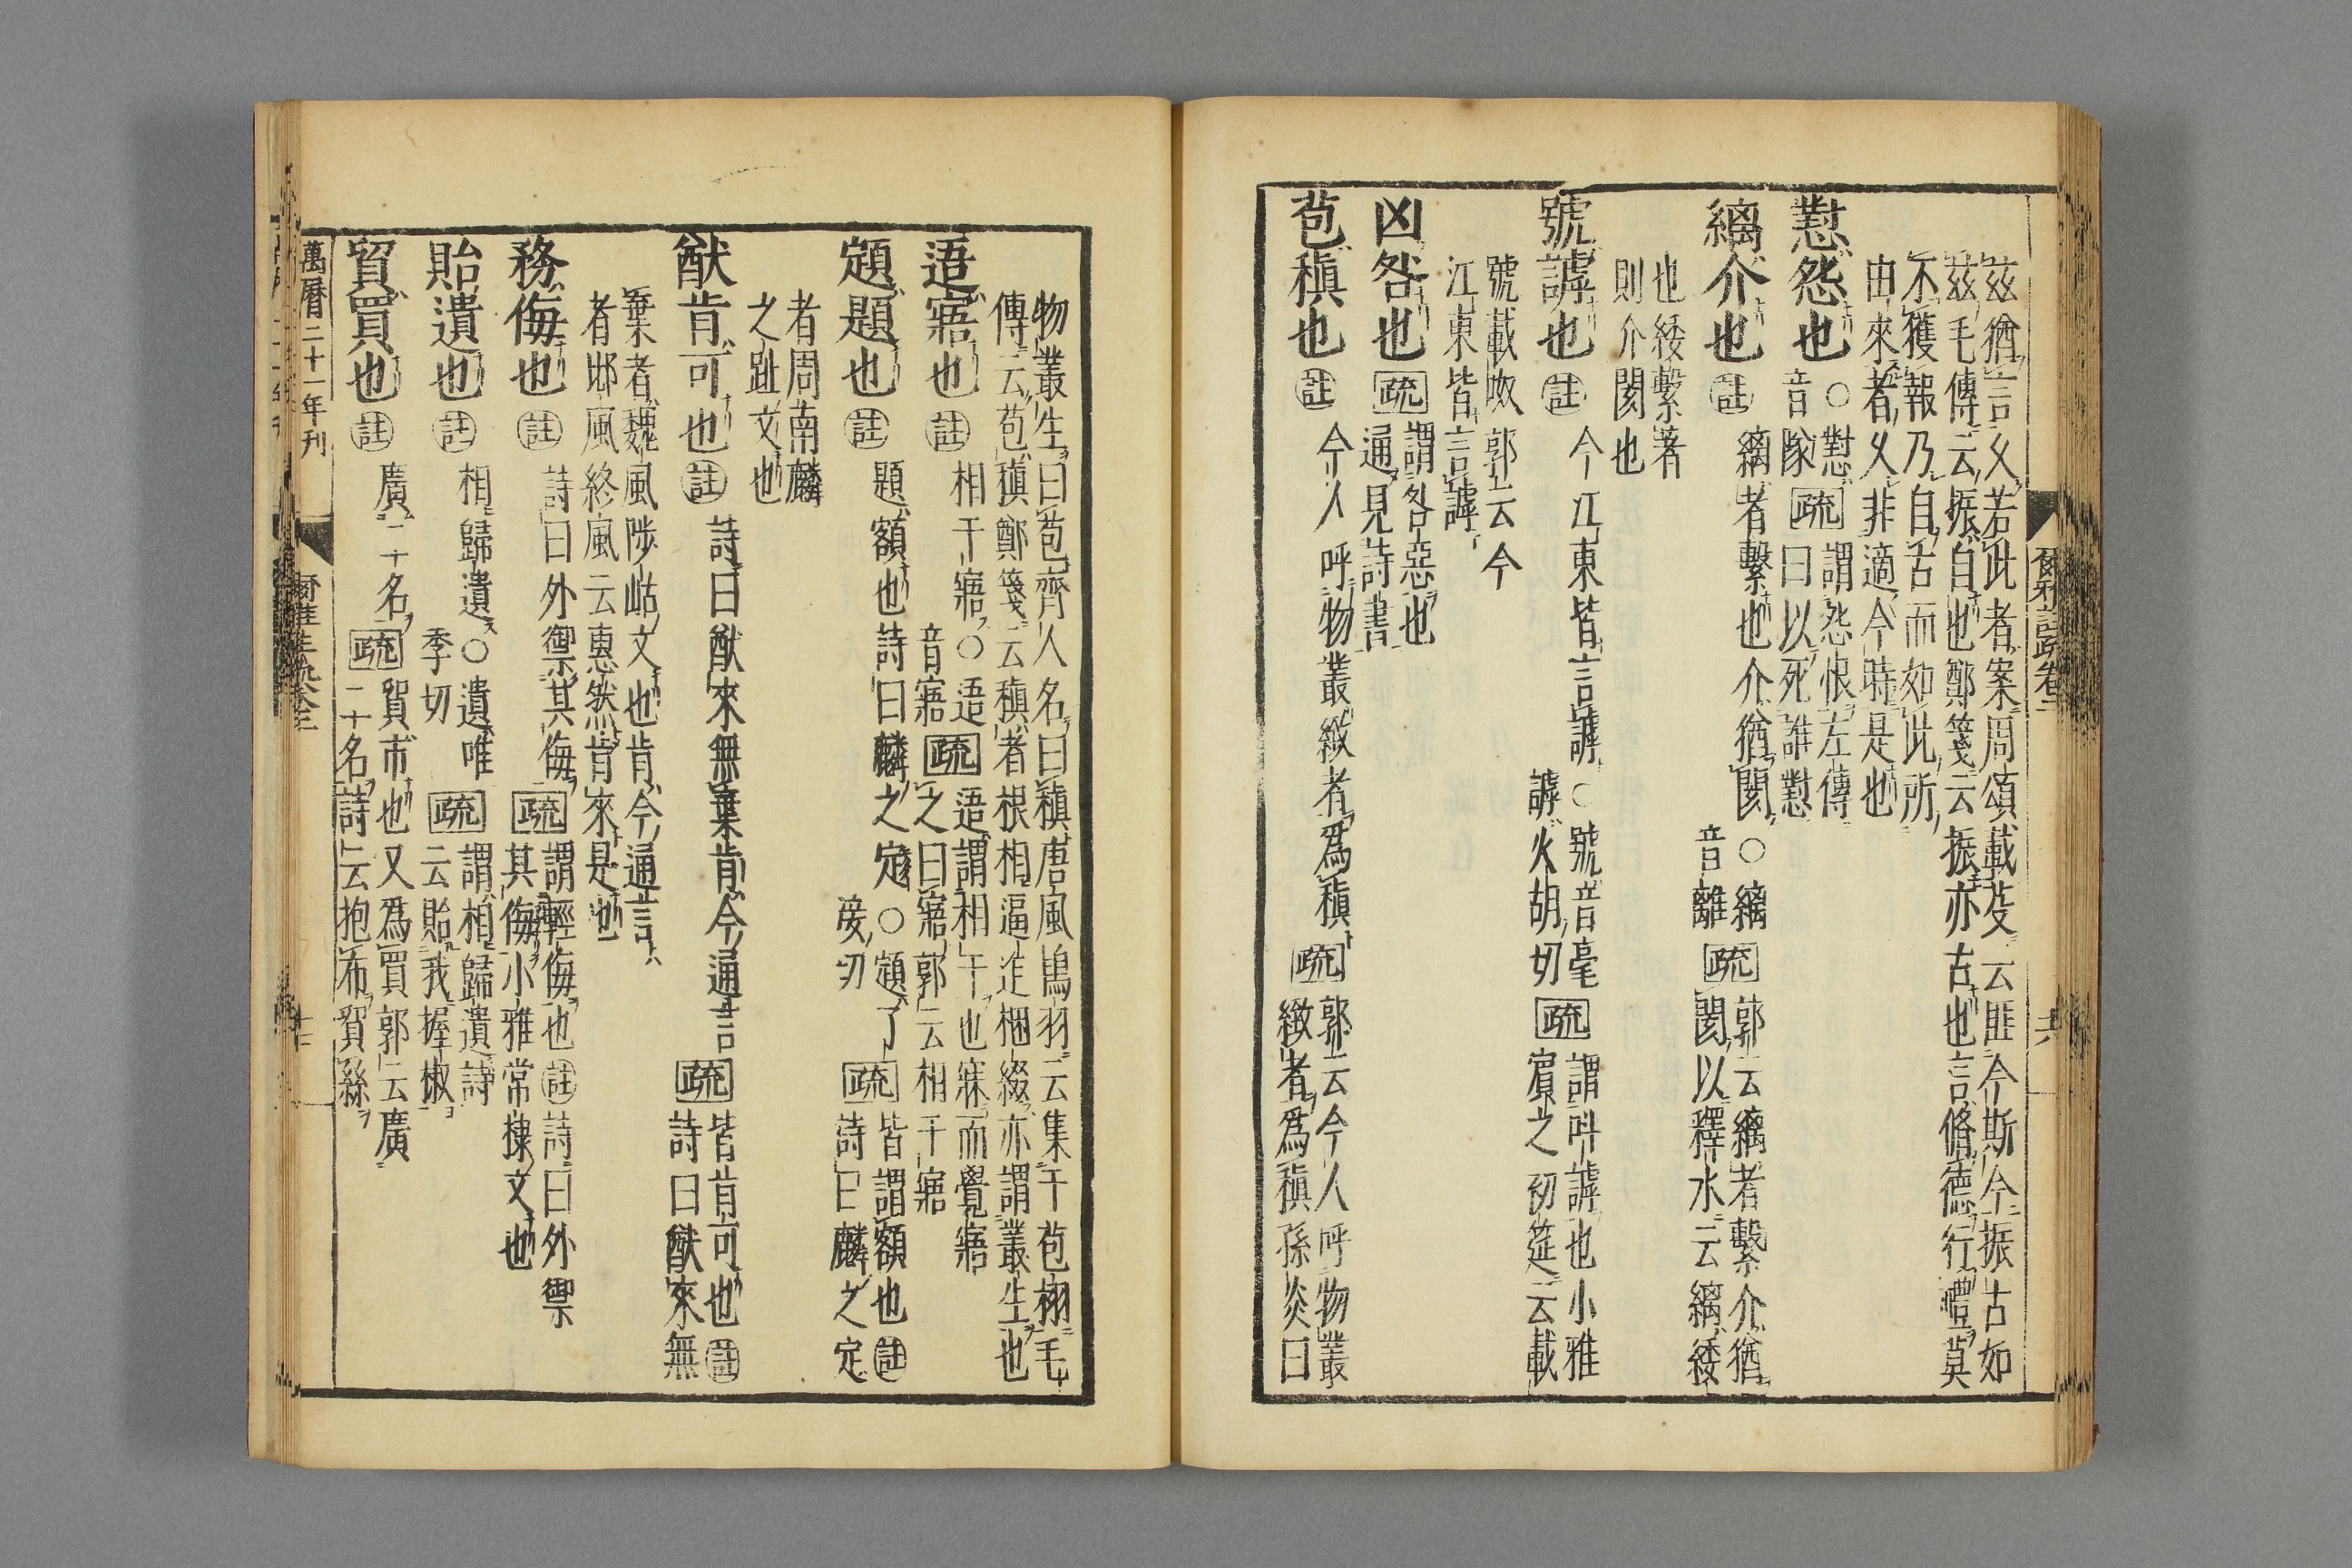 茲猶言乂若此者案周頌載芟云匪今斯今振古如
茲毛傳云振自也鄭箋云振亦古也言脩德行禮莫
不獲報乃自古而如此所
由來者乂非適今時是也
懟怨也
○懟
音隊
疏
謂怨恨左傳
曰以死誰懟
縭介也
註
縭者繫也介猶閡
○縭
音離
疏
郭云縭者繫介猶
閡以釋水云縭緌
也緌繫著
則介閡也
號謼也
註
今江東皆言謼
○號音毫
謼火胡切
疏
謂叫謼也小雅
賓之初筵云載
號載呶郭云今
江東皆言謼
凶咎也
疏
謂咎惡也
通見詩書
苞稹也
註
今人呼物叢緻者爲稹
疏
郭云今人呼物叢
緻者爲稹孫炎曰
爾雅註疏卷三
物叢生曰苞齊人名曰稹唐風鴇羽云集于苞栩毛
傳云苞稹鄭箋云稹者根相逼迮梱綴亦謂叢生也
逜寤也
註
相干寤
○逜
音寤
疏
逜謂相干也寐而覺寤
之曰寤郭云相干寤
顁題也
註
題額也詩曰麟之定
○顁丁
佞切
疏
皆謂額也註
詩曰麟之定
者周南麟
之趾文也
猷肯可也
註
詩曰猷來無棄肯今通言
疏
皆肯可也註
詩曰猷來無
棄者魏風陟岵文也肯今通言
者邶風終風云惠然肯來是也
務侮也
註
詩曰外禦其侮
疏
謂輕侮也註詩曰外禦
其侮小雅常棣文也
貽遺也
註
相歸遺
○遺唯
季切
疏
謂相歸遺詩
云貽我握椒
貿買也
註
廣二名
疏
貿市也又爲買郭云廣
二名詩云抱布貿絲
萬曆二十一年刊
爾雅註疏卷三